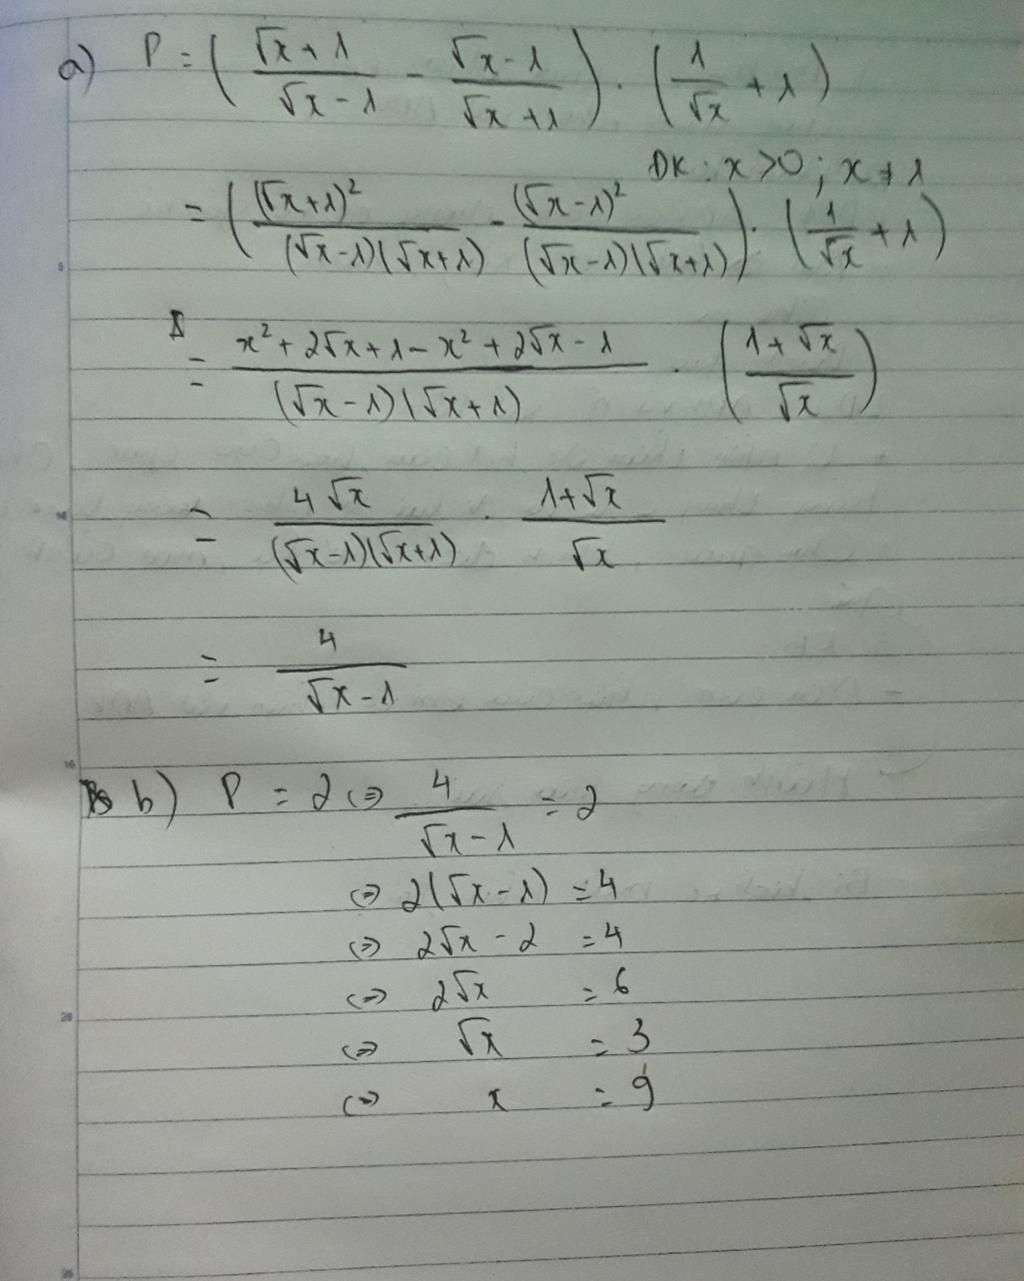 a) P = ( (√x + 1)/(√x - 1) - (√x - 1)/(√x + 1) ) . ( 1/√x + 1 )
ĐK : x > 0 ; x ≠ 1
= ( (√x + 1)²/((√x - 1)(√x + 1)) - (√x - 1)²/((√x - 1)(√x + 1)) ) . ( 1/√x + 1 )
= (x² + 2√x + 1 - x² + 2√x - 1)/((√x - 1)(√x + 1)) . ( (1 + √x)/√x )
= 4√x/((√x - 1)(√x + 1)) . (1 + √x)/√x
= 4/(√x - 1)
b) P = 2 <=> 4/(√x - 1) = 2
<=> 2(√x - 1) = 4
<=> 2√x - 2 = 4
<=> 2√x = 6
<=> √x = 3
<=> x = 9